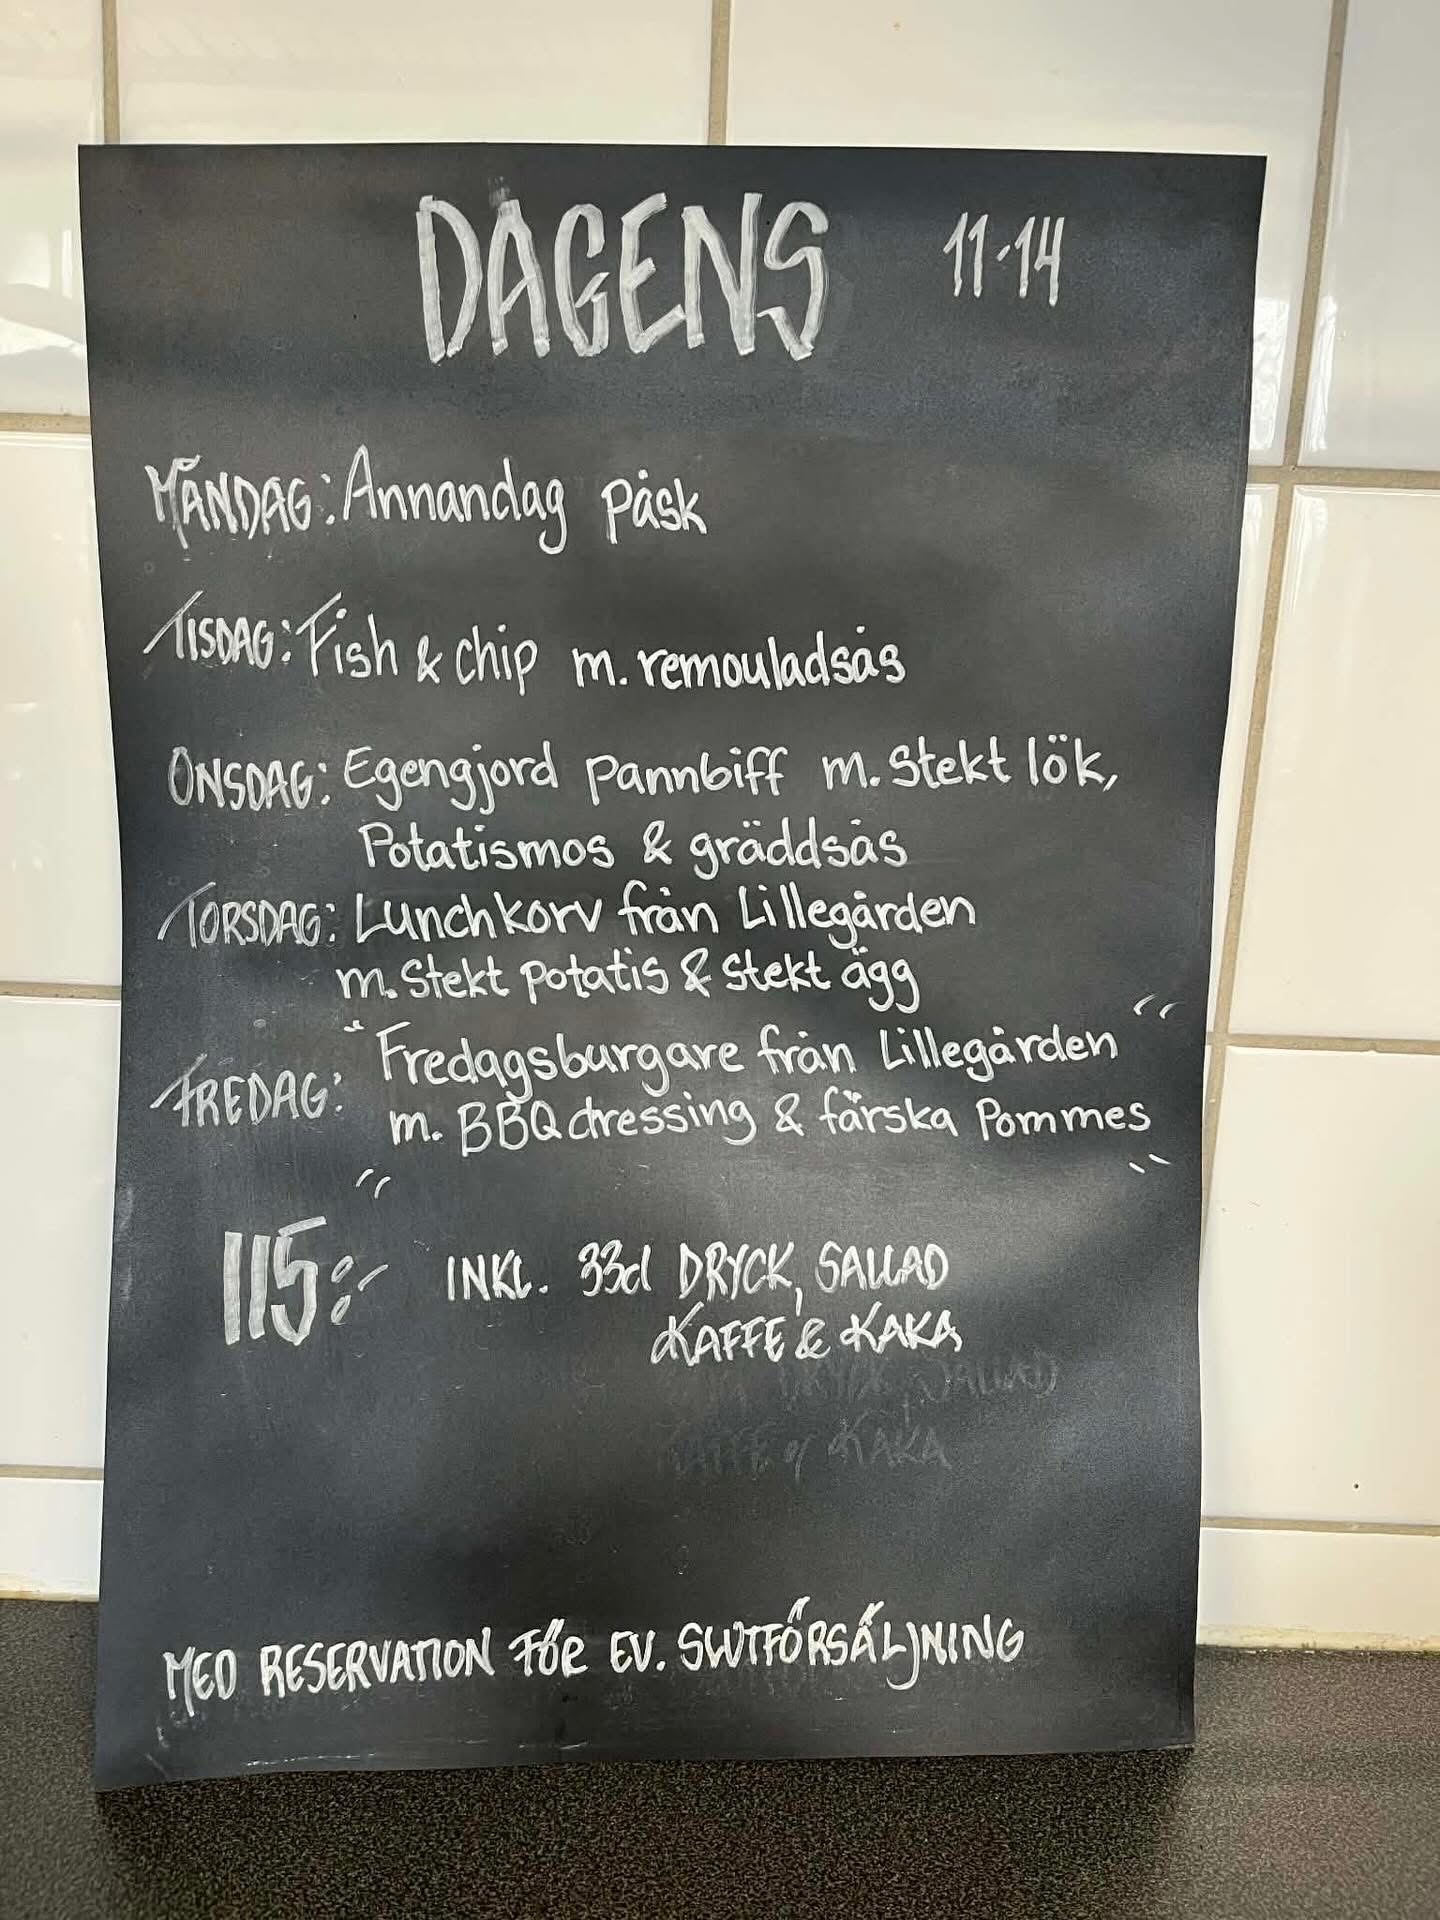 DAGENS 11-14
MÅNDAG: Annandag påsk
TISDAG: Fish & chip m. remouladsås
ONSDAG: Egengjord pannbiff m. Stekt lök,
Potatismos & gräddsås
TORSDAG: Lunchkorv från Lillegården
m. Stekt potatis & stekt ägg
FREDAG: "Fredagsburgare från Lillegården"
m. BBQ dressing & färska Pommes
115:- INKL. 33cl DRYCK, SALLAD
KAFFE & KAKA
DRYCK, SALLAD
KAFFE & KAKA
MED RESERVATION FÖR EV. SLUTFÖRSÄLJNING